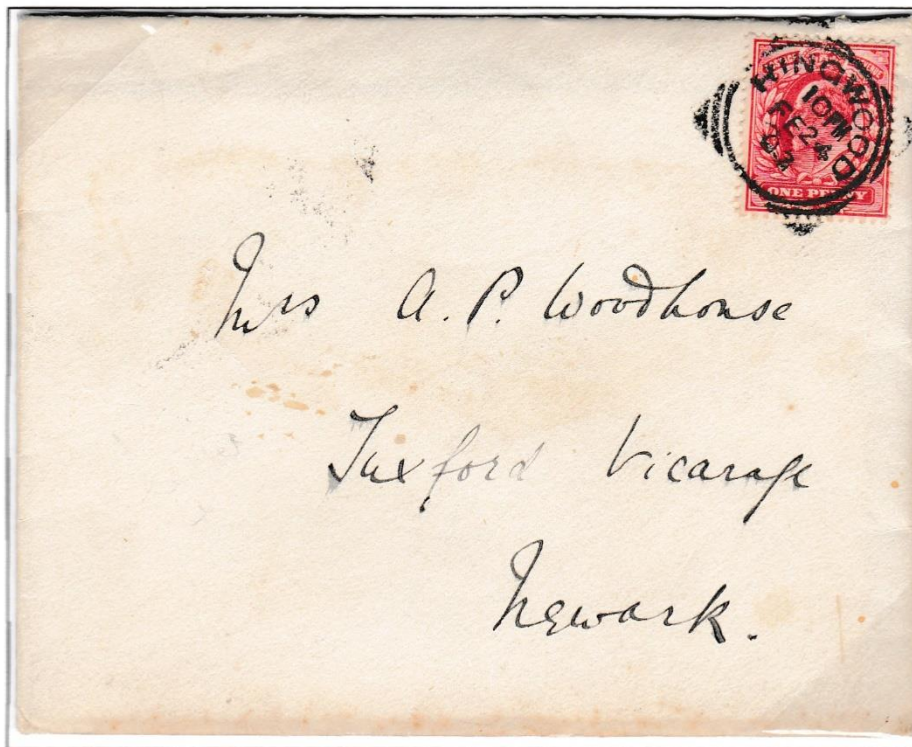 RINGWOOD
10 PM
FE 24
ONE PENNY
Mrs A. P. Woodhouse
Tuxford Vicarage
Newark.